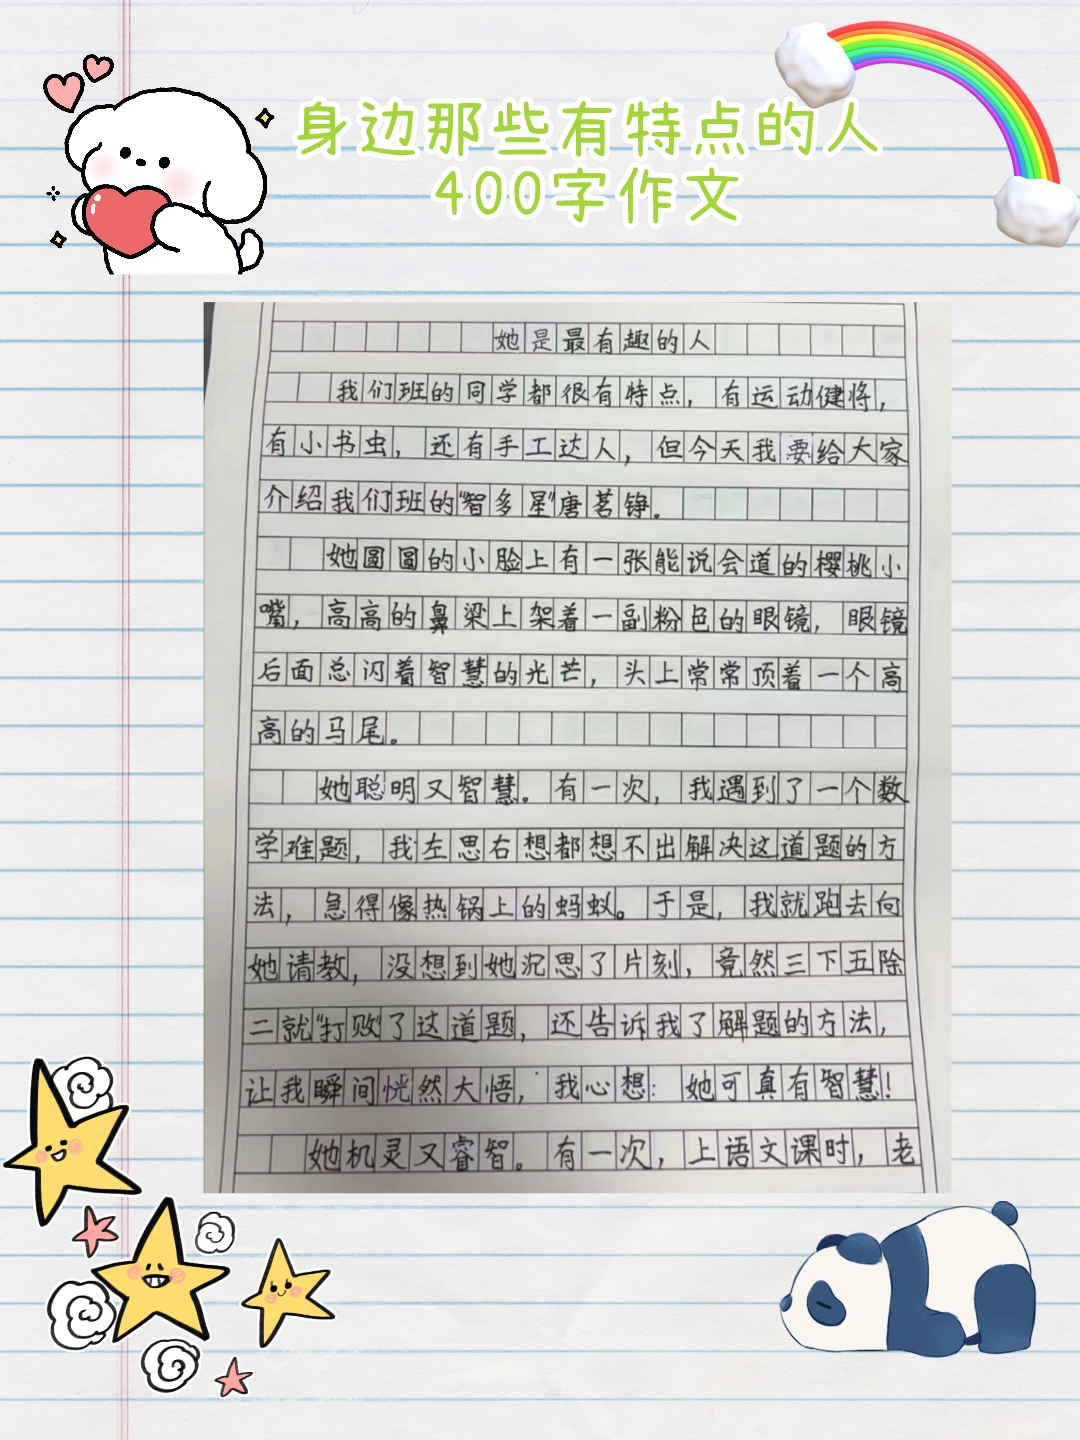 身边那些有特点的人
400字作文
她是最有趣的人
我们班的同学都很有特点，有运动健将，
有小书虫，还有手工达人，但今天我要给大家
介绍我们班的“智多星”唐茗铮。
她圆圆的小脸上有一张能说会道的樱桃小
嘴，高高的鼻梁上架着一副粉色的眼镜，眼镜
后面总闪着智慧的光芒，头上常常顶着一个高
高的马尾。
她聪明又智慧。有一次，我遇到了一个数
学难题，我左思右想都想不出解决这道题的方
法，急得像热锅上的蚂蚁。于是，我就跑去向
她请教，没想到她沉思了片刻，竟然三下五除
二就“打败”了这道题，还告诉我了解题的方法，
让我瞬间恍然大悟，我心想：她可真有智慧！
她机灵又睿智。有一次，上语文课时，老